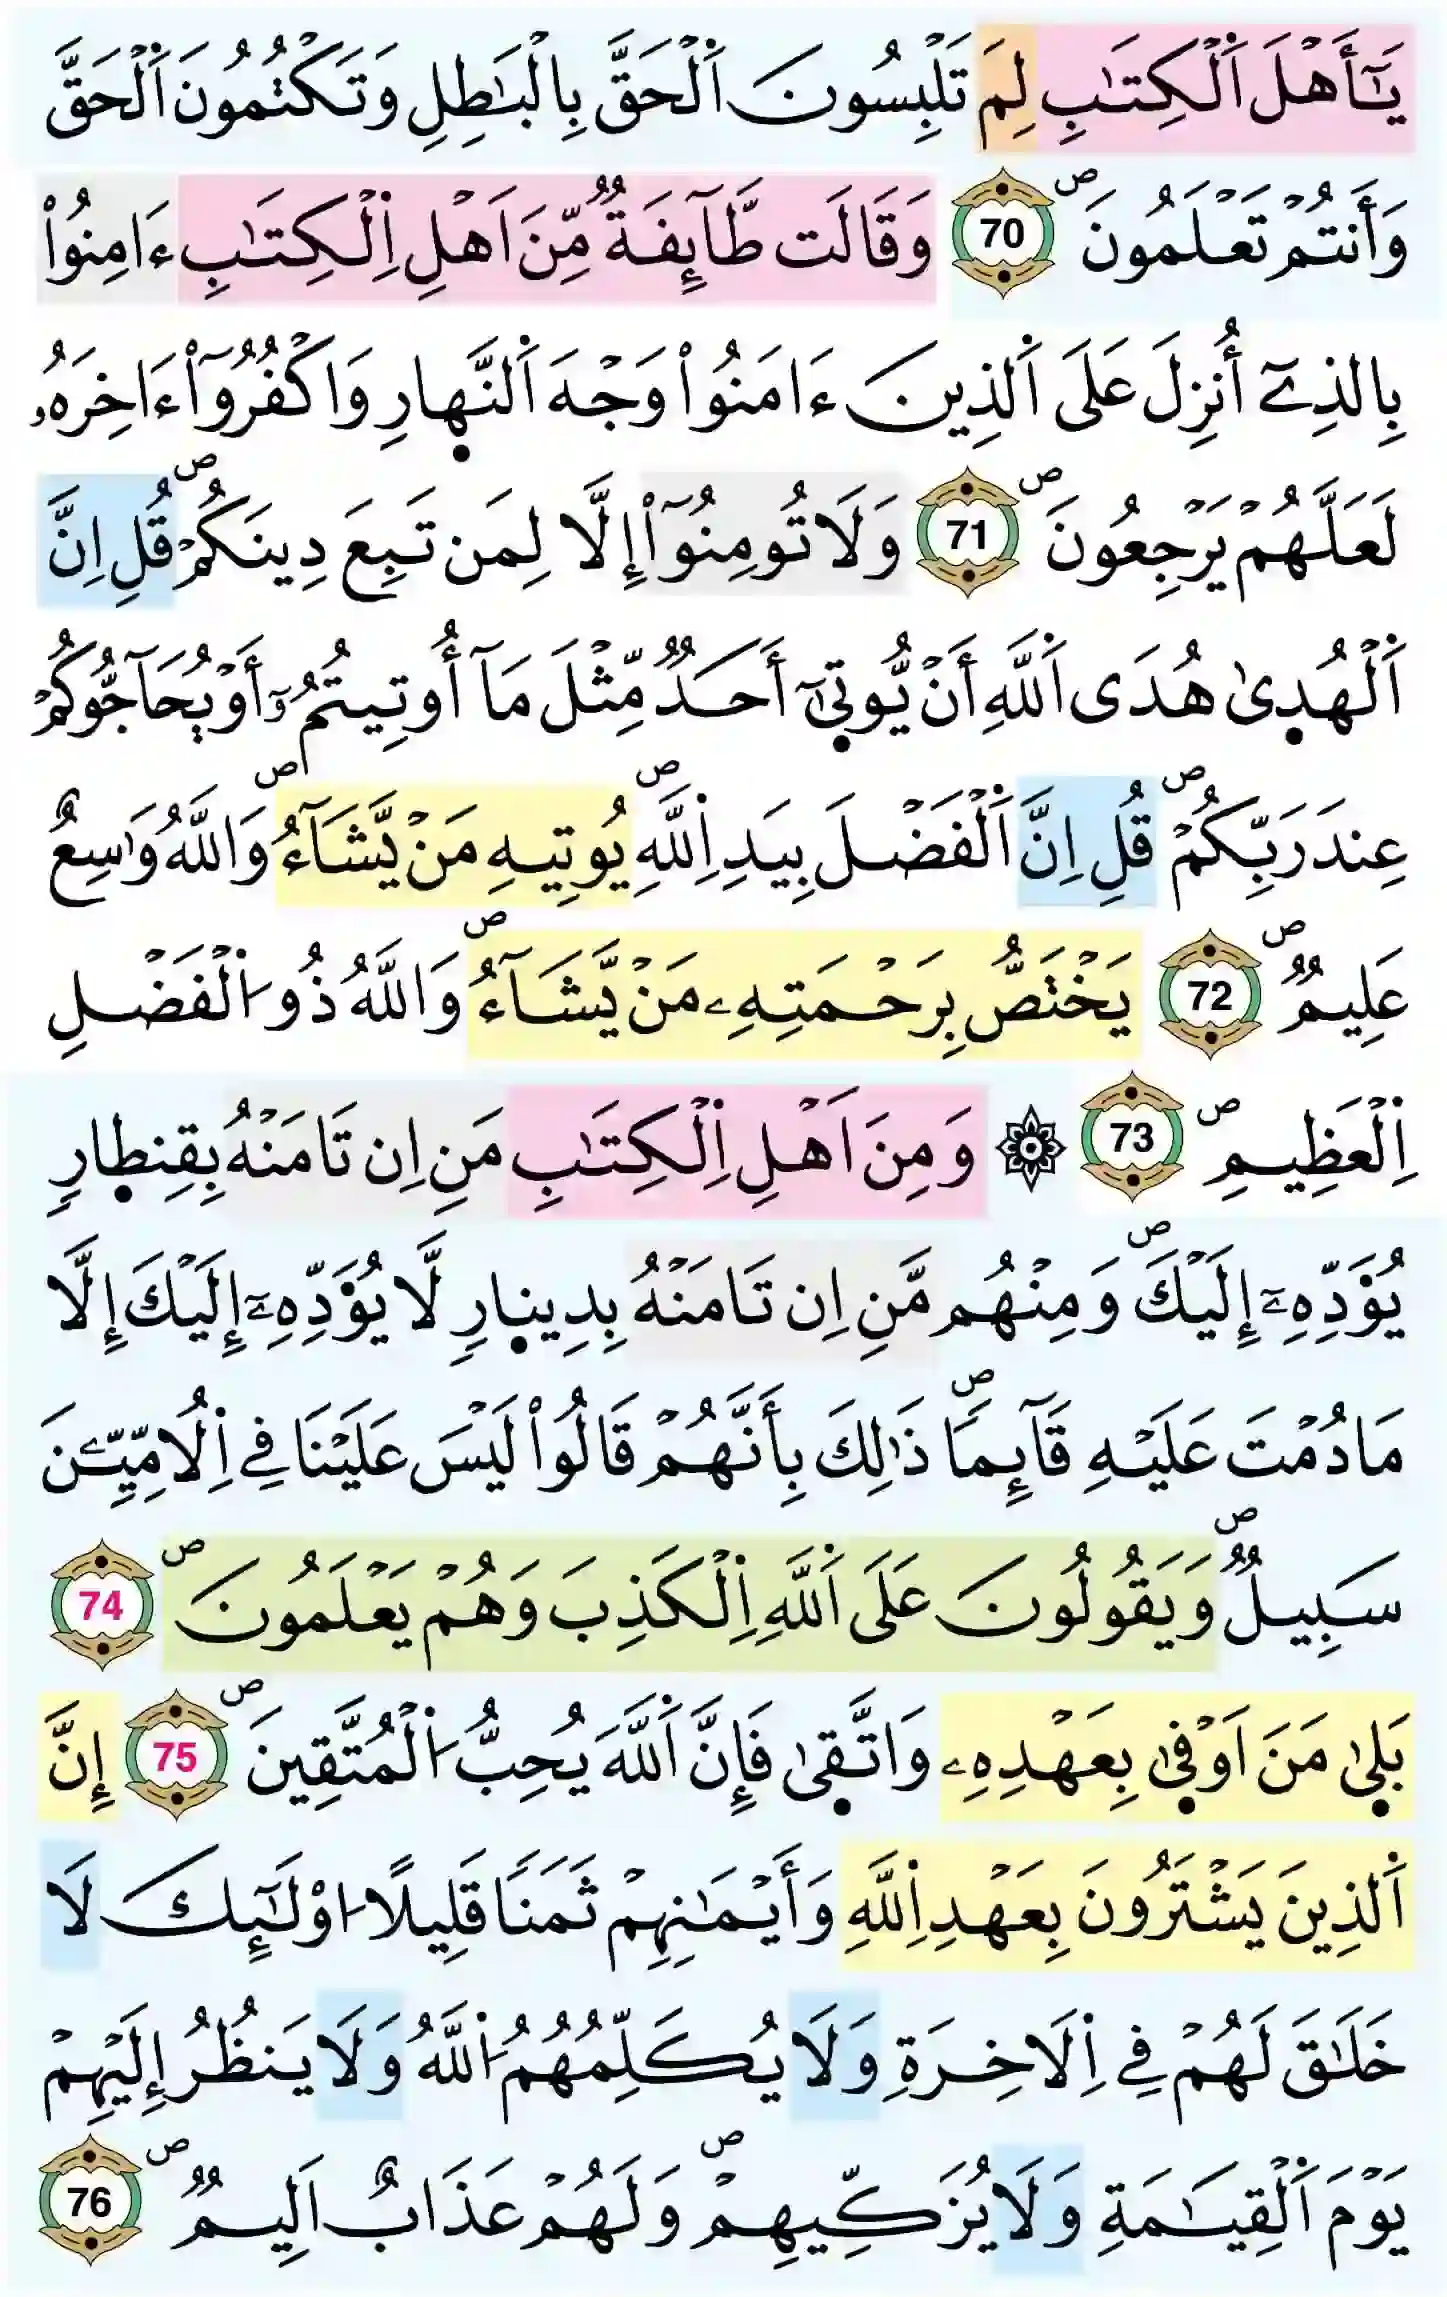 يَٰٓأَهْلَ اَ۬لْكِتَٰبِ لِمَ تَلْبِسُونَ اَ۬لْحَقَّ بِالْبَٰطِلِ وَتَكْتُمُونَ اَ۬لْحَقَّ
وَأَنتُمْ تَعْلَمُونَۖ 70 وَقَالَت طَّآئِفَةٞ مِّنَ اَهْلِ اِ۬لْكِتَٰبِ ءَامِنُواْ
بِالذِےٓ أُنزِلَ عَلَى اَ۬لذِينَ ءَامَنُواْ وَجْهَ اَ۬لنَّه۪ارِ وَاكْفُرُوٓاْ ءَاخِرَهُۥ
لَعَلَّهُمْ يَرْجِعُونَۖ 71 وَلَا تُومِنُوٓاْ إِلَّا لِمَن تَبِعَ دِينَكُمْۖ قُلِ اِنَّ
اَ۬لْهُد۪ىٰ هُدَى اَ۬للَّهِ أَنْ يُّوت۪ىٰٓ أَحَدٞ مِّثْلَ مَآ أُوتِيتُمُۥٓ أَوْ يُحَآجُّوكُمْ
عِندَ رَبِّكُمْۖ قُلِ اِنَّ اَ۬لْفَضْلَ بِيَدِ اِ۬للَّهِۖ يُوتِيهِ مَنْ يَّشَآءُۖ وَاللَّهُ وَٰسِعٌ
عَلِيمٞۖ 72 يَخْتَصُّ بِرَحْمَتِهِۦ مَنْ يَّشَآءُۖ وَاللَّهُ ذُو اُ۬لْفَضْلِ
اِ۬لْعَظِيمِۖ 73 ۞ وَمِنَ اَهْلِ اِ۬لْكِتَٰبِ مَنِ اِن تَامَنْهُ بِقِنط۪ارٖ
يُؤَدِّهِۦٓ إِلَيْكَۖ وَمِنْهُم مَّنِ اِن تَامَنْهُ بِدِين۪ارٖ لَّا يُؤَدِّهِۦٓ إِلَيْكَ إِلَّا
مَا دُمْتَ عَلَيْهِ قَآئِماٗۖ ذَٰلِكَ بِأَنَّهُمْ قَالُواْ لَيْسَ عَلَيْنَا فِے اِ۬لُامِّيِّـۧنَ
سَبِيلٞۖ وَيَقُولُونَ عَلَى اَ۬للَّهِ اِ۬لْكَذِبَ وَهُمْ يَعْلَمُونَۖ 74
بَل۪ىٰ مَنَ اَوْف۪ىٰ بِعَهْدِهِۦ وَاتَّق۪ىٰ فَإِنَّ اَ۬للَّهَ يُحِبُّ اُ۬لْمُتَّقِينَۖ 75 إِنَّ
اَ۬لذِينَ يَشْتَرُونَ بِعَهْدِ اِ۬للَّهِ وَأَيْمَٰنِهِمْ ثَمَناٗ قَلِيلاً اُوْلَٰٓئِكَ لَا
خَلَٰقَ لَهُمْ فِے اِ۬لَاخِرَةِ وَلَا يُكَلِّمُهُمُ اُ۬للَّهُ وَلَا يَنظُرُ إِلَيْهِمْ
يَوْمَ اَ۬لْقِيَٰمَةِ وَلَا يُزَكِّيهِمْۖ وَلَهُمْ عَذَابٌ اَلِيمٞۖ 76